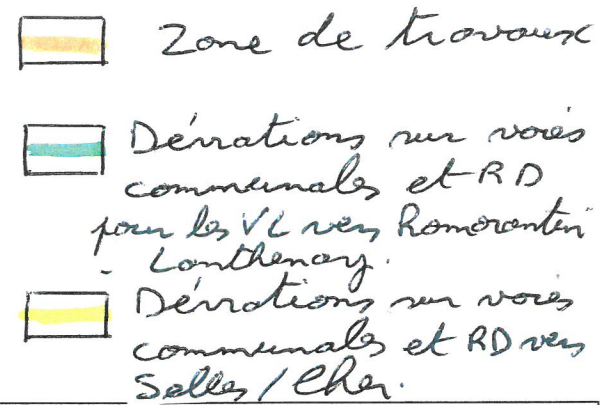 Zone de travaux
Déviations sur voies
communales et RD
pour les VL vers Romorantin
Lanthenay.
Déviations sur voies
communales et RD vers
Selles / Cher.